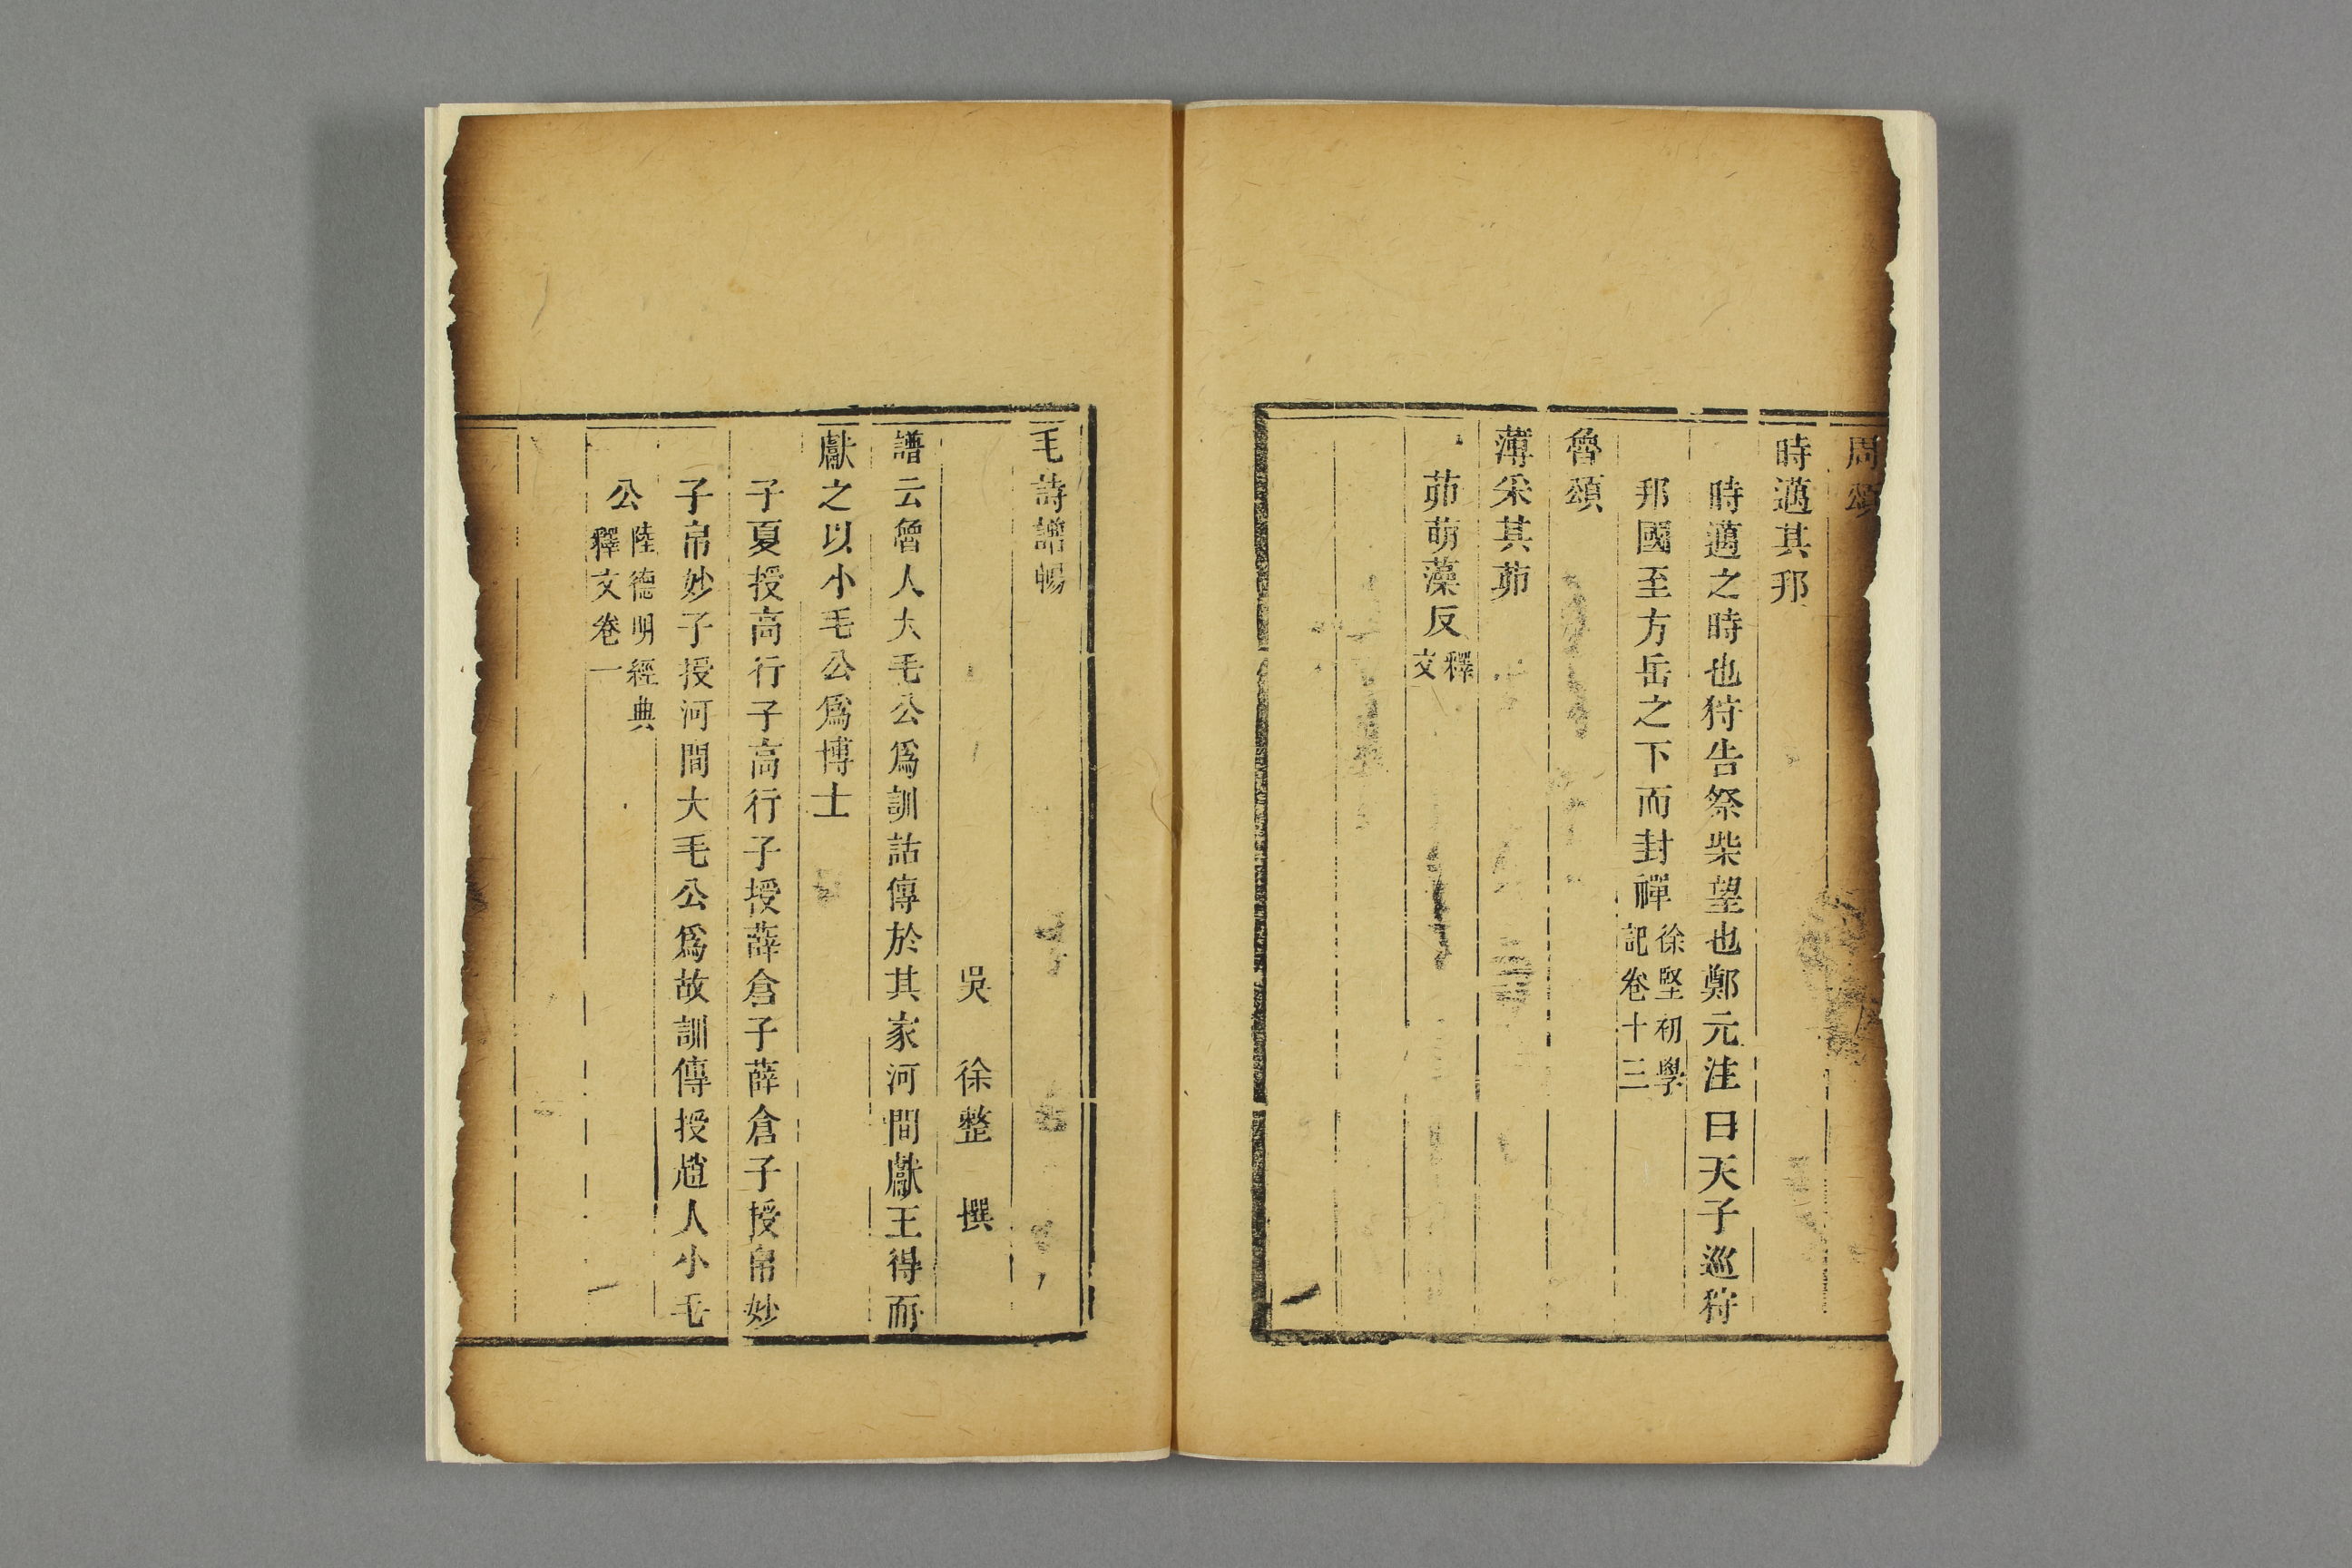 周頌
時邁其邦
時邁之時也狩告祭柴望也鄭元注曰天子巡狩
邦國至方岳之下而封禪徐堅初學
記卷十三
魯頌
薄采其茆
茆萌藻反釋
文
毛詩譜暢
吳 徐整 撰
譜云魯人大毛公為訓詁傳於其家河間獻王得而
獻之以小毛公為博士
子夏授高行子高行子授薛倉子薛倉子授帛妙
子帛妙子授河間大毛公為故訓傳授趙人小毛
公陸德明經典
釋文卷一